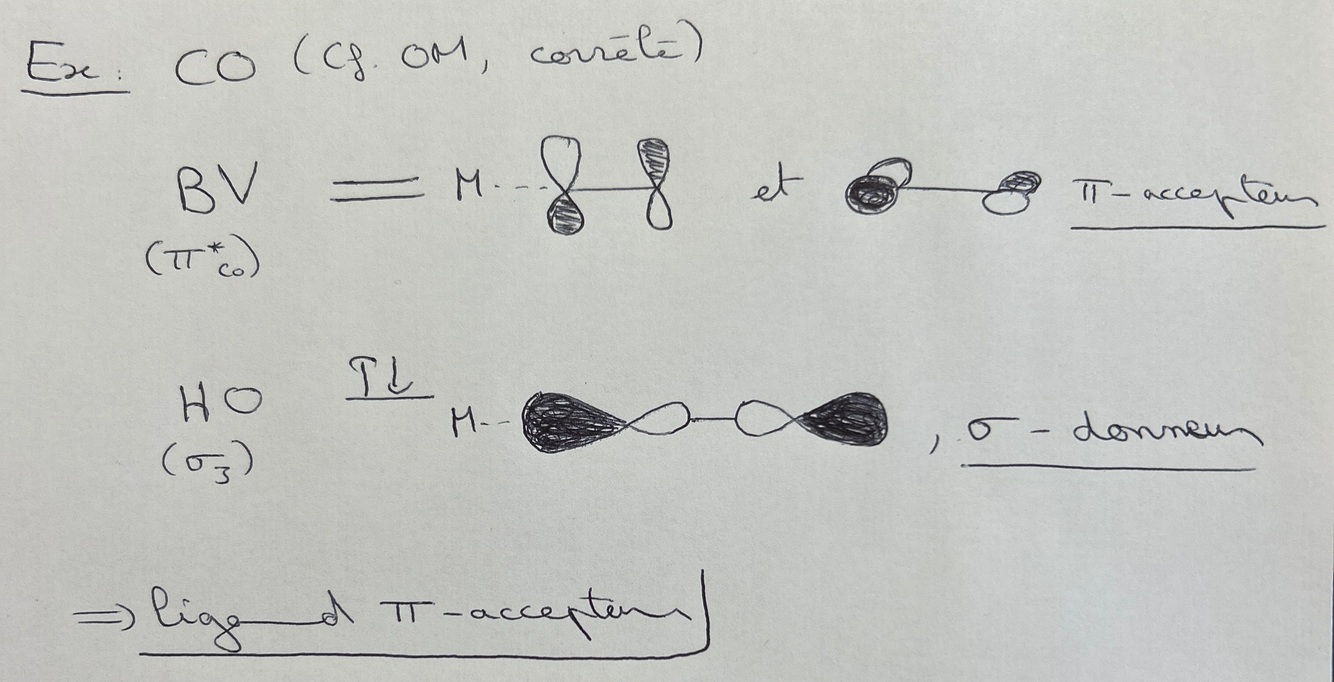 Ex : CO (Cf. OM, corrélé)
BV M et π-accepteur
(π*CO)
HO ↑↓ M , σ-donneur
(σ3)
⇒ ligand π-accepteur